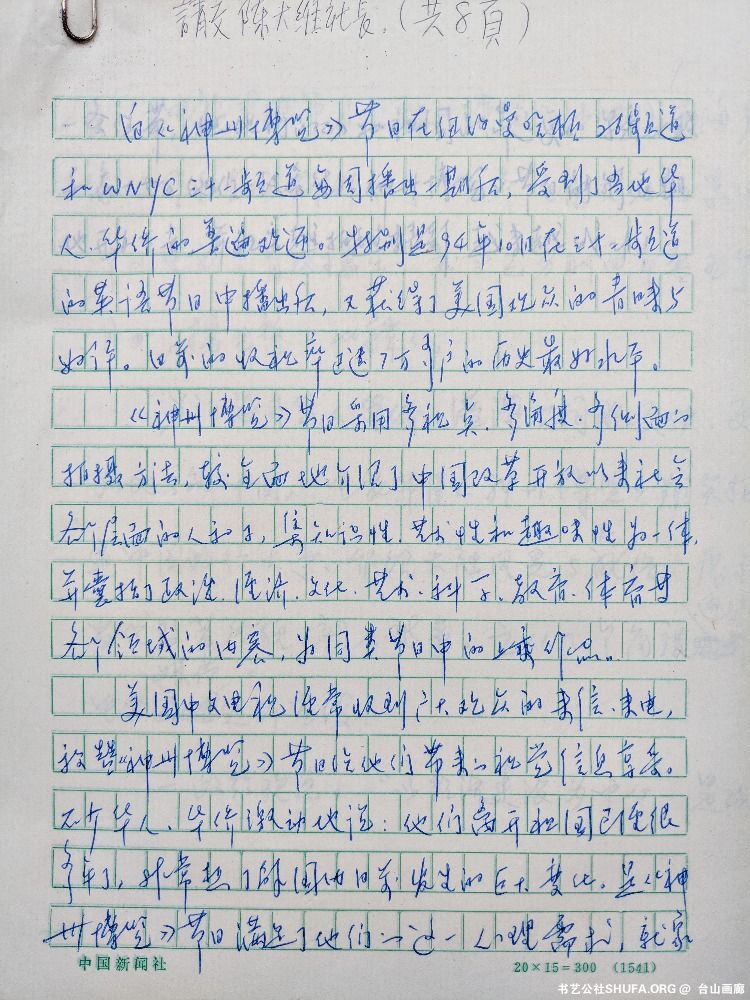 請交陈大维社长.(共8頁)
自《神州博览》节目在纽约曼哈顿26频道
和WNYC三十一频道每周播出一期后,受到了当地华
人、华侨的普遍欢迎。特别是94年10月在三十一频道
的英语节目中播出后,又获得了美国观众的青睐与
好评。目前的收视率已达7万多户的历史最好水平。
《神州博览》节目采用多视点、多角度、多侧面的
拍摄方法,较全面地介绍了中国改革开放以来社会
各个层面的人和事,集知识性、艺术性和趣味性为一体,
并囊括了政治、经济、文化、艺术、科学、教育、体育等
各个领域的内容,为同类节目中的上乘作品。
美国中文电视经常收到广大观众的来信、来电,
称赞《神州博览》节目给他们带来的视觉信息享受。
不少华人、华侨激动地说:他们离开祖国已经很
多年了,非常想了解国内目前发生的巨大变化,是《神
州博览》节目满足了他们的这一心理需求,就家
中国新闻社
20×15=300 (1541)
书艺公社SHUFA.ORG @ 台山画廊